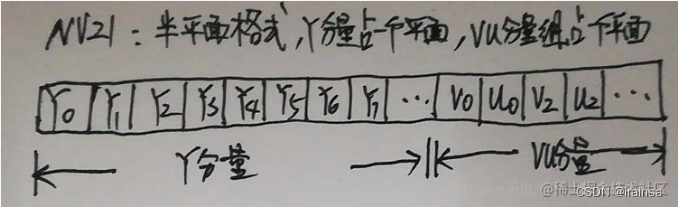 NV21：半平面格式，Y分量占一个平面，VU分量组占个平面
Y0 Y1 Y2 Y3 Y4 Y5 Y6 Y7 ... V0 U0 V2 U2 ...
Y分量 VU分量
@稀土掘金技术社区
CSDN @irainsa